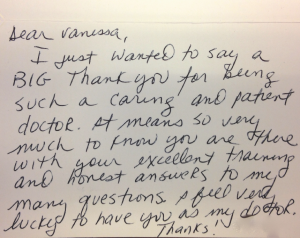 Dear Vanessa,
I just wanted to say a
BIG Thank you for being
such a caring and patient
doctor. It means so very
much to know you are there
with your excellent training
and honest answers to my
many questions. I feel very
lucky to have you as my doctor.
Thanks!